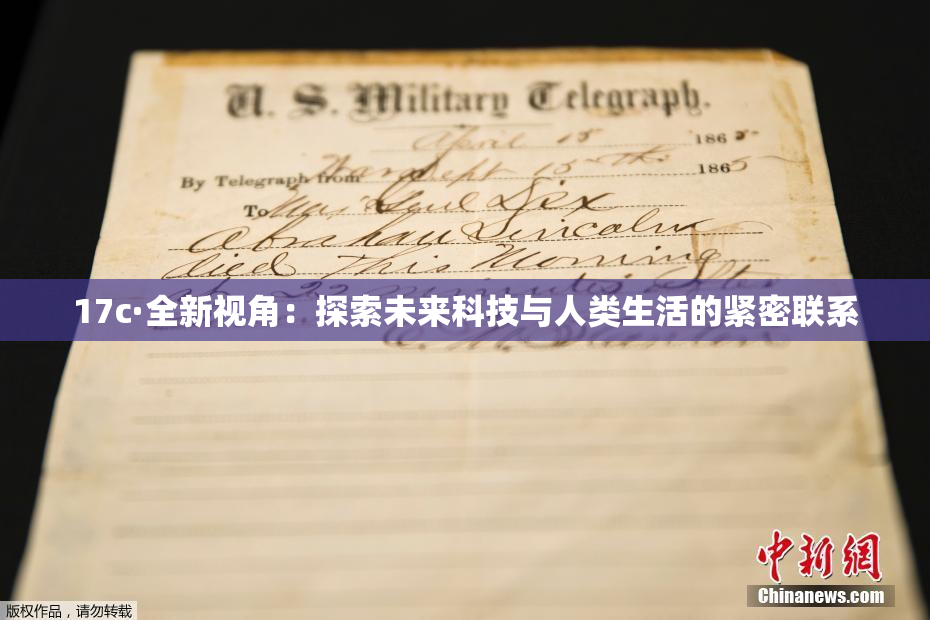 U. S. Military Telegraph.
April 15 1865
By Telegraph from War Dept 15th 1865
To Maj Genl Dix
Abraham Lincoln
died This Morning
at 22 minutes after
17c·全新视角：探索未来科技与人类生活的紧密联系
E. M. Stanton
中新网
Chinanews.com
版权作品，请勿转载